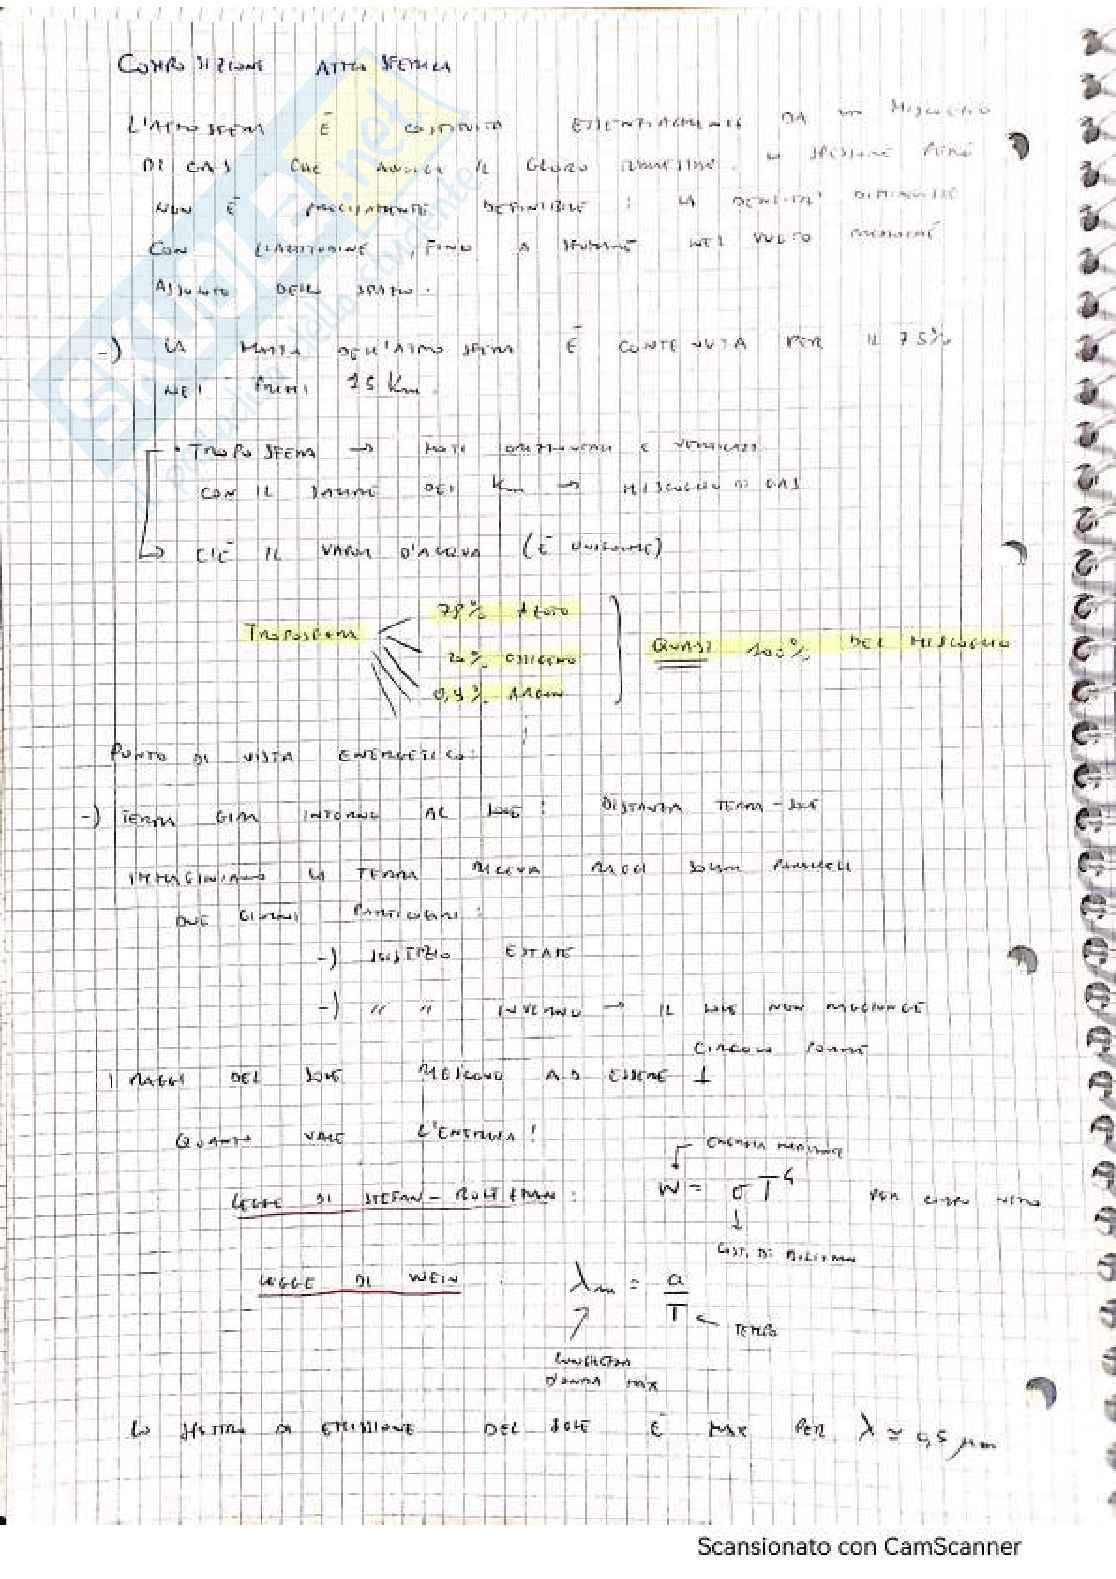 COMPOSIZIONE ATMOSFERICA
L'ATMOSFERA È COSTITUITA ESSENZIALMENTE DA UN MISCUGLIO
DI GAS CHE AVVOLGE IL GLOBO TERRESTRE. LO SPESSORE PERÒ
NON È PRECISAMENTE DEFINIBILE : LA DENSITÀ DIMINUISCE
CON L'ALTITUDINE, FINO A SFUMARE NEL VUOTO PRESSOCHÉ
ASSOLUTO DELLO SPAZIO.
-) LA MASSA DELL'ATMOSFERA È CONTENUTA PER IL 75%
NEI PRIMI 15 Km.
• TROPOSFERA → MOTI ORIZZONTALI E VERTICALI
CON IL SALIRE DEI Km → MISCUGLIO DI GAS
↳ C'È IL VAPOR D'ACQUA (È UNIFORME)
78% AZOTO
TROPOSFERA QUASI 100% DEL MISCUGLIO
20% OSSIGENO
0,9% ARGON
PUNTO DI VISTA ENERGETICO:
-) TERRA GIRA INTORNO AL SOLE : DISTANZA TERRA-SOLE
IMMAGINIAMO LA TERRA RICEVA RAGGI SOLARI PARALLELI
DUE GIORNI PARTICOLARI:
-) SOLSTIZIO ESTATE
-) " " INVERNO → IL SOLE NON RAGGIUNGE
CIRCOLO POLARE
I RAGGI DEL SOLE RIESCONO AD ESSERE ⊥
QUANTO VALE L'ENERGIA?
ENERGIA RADIANTE
LEGGE DI STEFAN-BOLTZMAN: W = σT⁴ PER CORPO NERO
COST. DI BOLTZMAN
LEGGE DI WEIN : λm = a/T ← TEMPO
LUNGHEZZA
D'ONDA MAX
LO SPETTRO DI EMISSIONE DEL SOLE È MAX PER λ ≃ 0,5 μm
SKUOLA.net
Scansionato con CamScanner